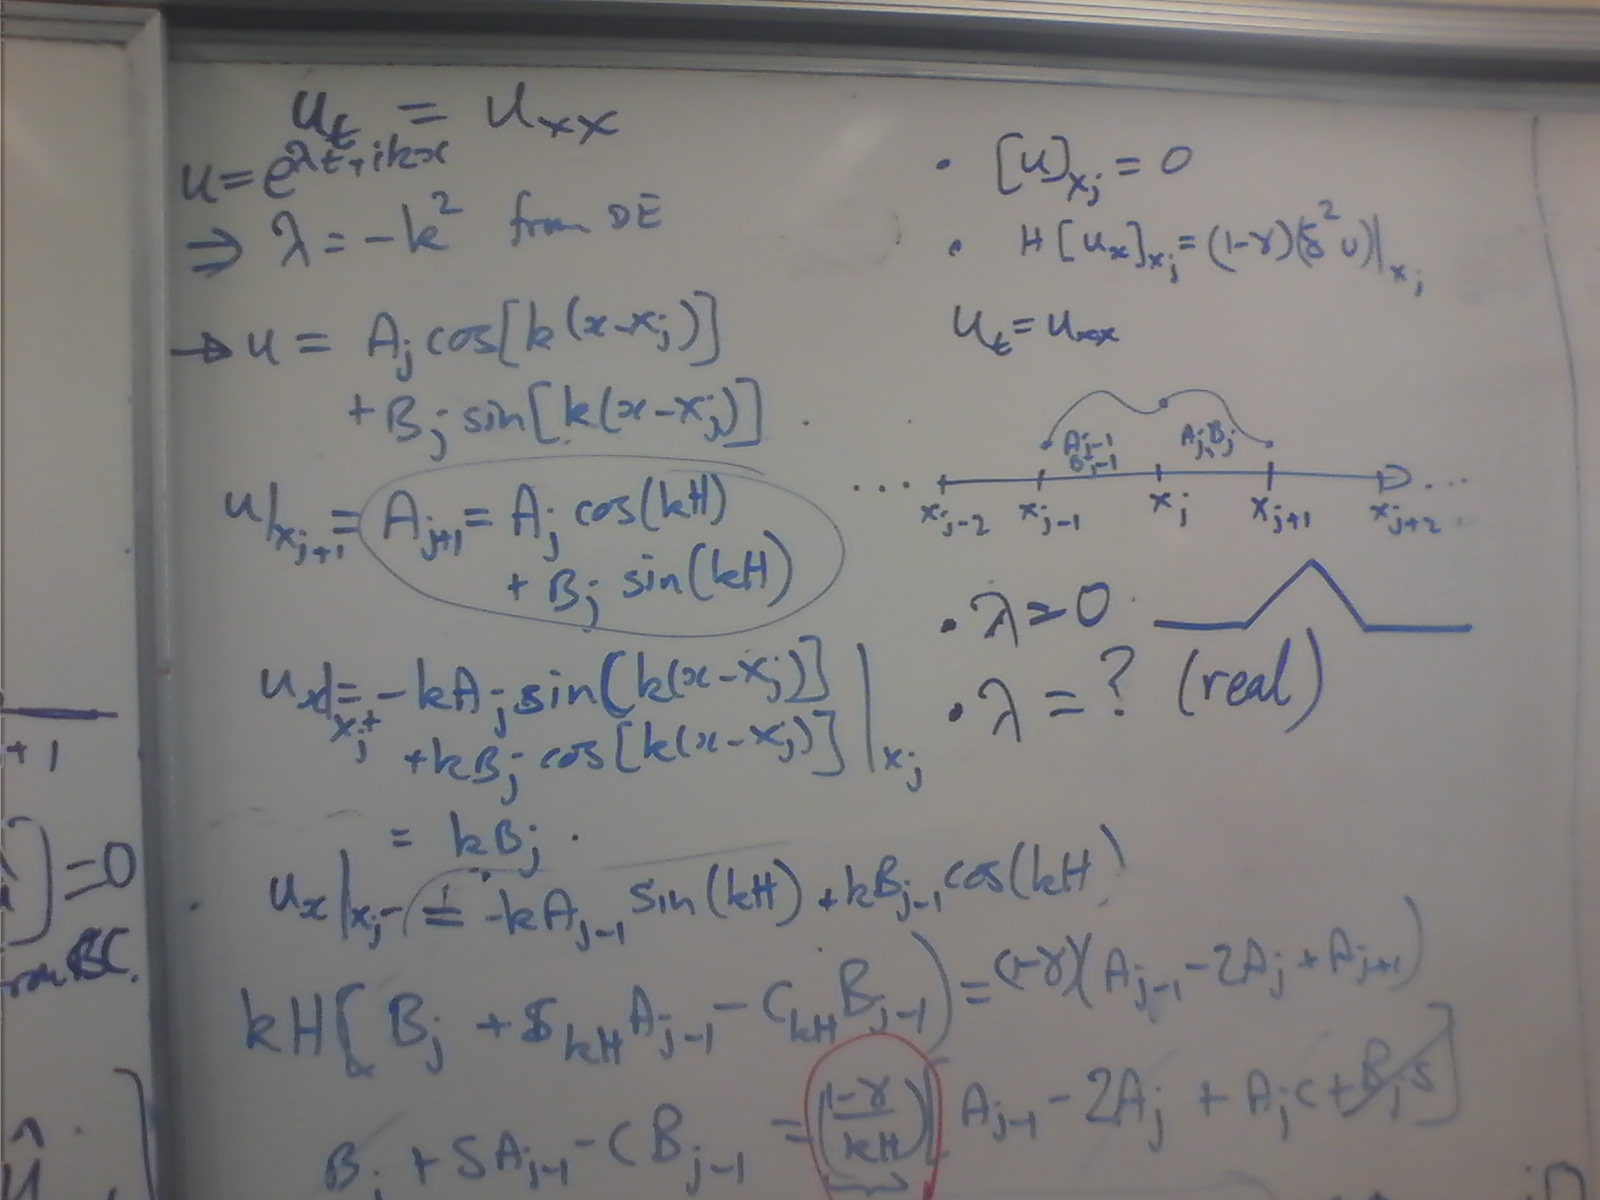 u_t = u_xx
u = e^{λt+ikx}
⇒ λ = -k² from DE
→ u = A_j cos[k(x-x_j)]
+ B_j sin[k(x-x_j)]
u|_{x_{j+1}} = A_{j+1} = A_j cos(kH)
+ B_j sin(kH)
u_x|_{x_j^+} = -kA_j sin[k(x-x_j)]
+kB_j cos[k(x-x_j)]|_{x_j}
= kB_j.
u_x|_{x_j^-} = -kA_{j-1} sin(kH) + kB_{j-1} cos(kH)
kH[B_j + S_{kH} A_{j-1} - C_{kH} B_{j-1}) = (1-γ)(A_{j-1} - 2A_j + A_{j+1})
B_j + SA_{j-1} - CB_{j-1} = ((1-γ)/kH)[A_{j-1} - 2A_j + A_j c + B_j s]
• [u]_{x_j} = 0
• H[u_x]_{x_j} = (1-γ)(δ²u)|_{x_j}
u_t = u_xx
A_{j-1} A_j, B_j
B_{j-1}
... x_{j-2} x_{j-1} x_j x_{j+1} x_{j+2} ...
• λ = 0
• λ = ? (real)
+1
)=0
from BC.